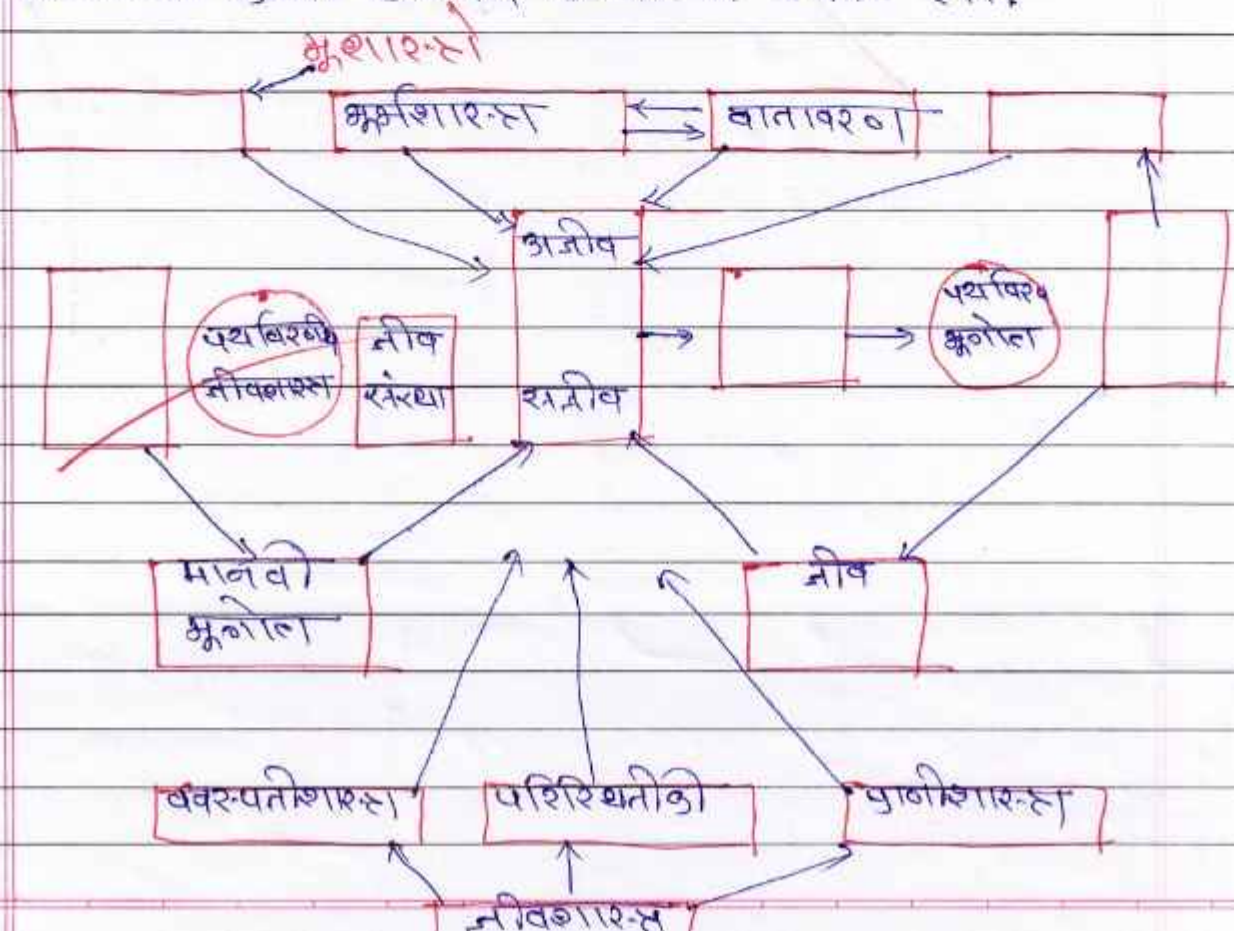 भूशास्त्र
भूगर्भशास्त्र
वातावरण
अजीव
पर्यावरणीय
जीवशास्त्र
जीव
संस्था
सजीव
पर्यावरण
भूगोल
मानवी
भूगोल
जीव
वनस्पतीशास्त्र
परिस्थितीकी
प्राणीशास्त्र
जीवशास्त्र